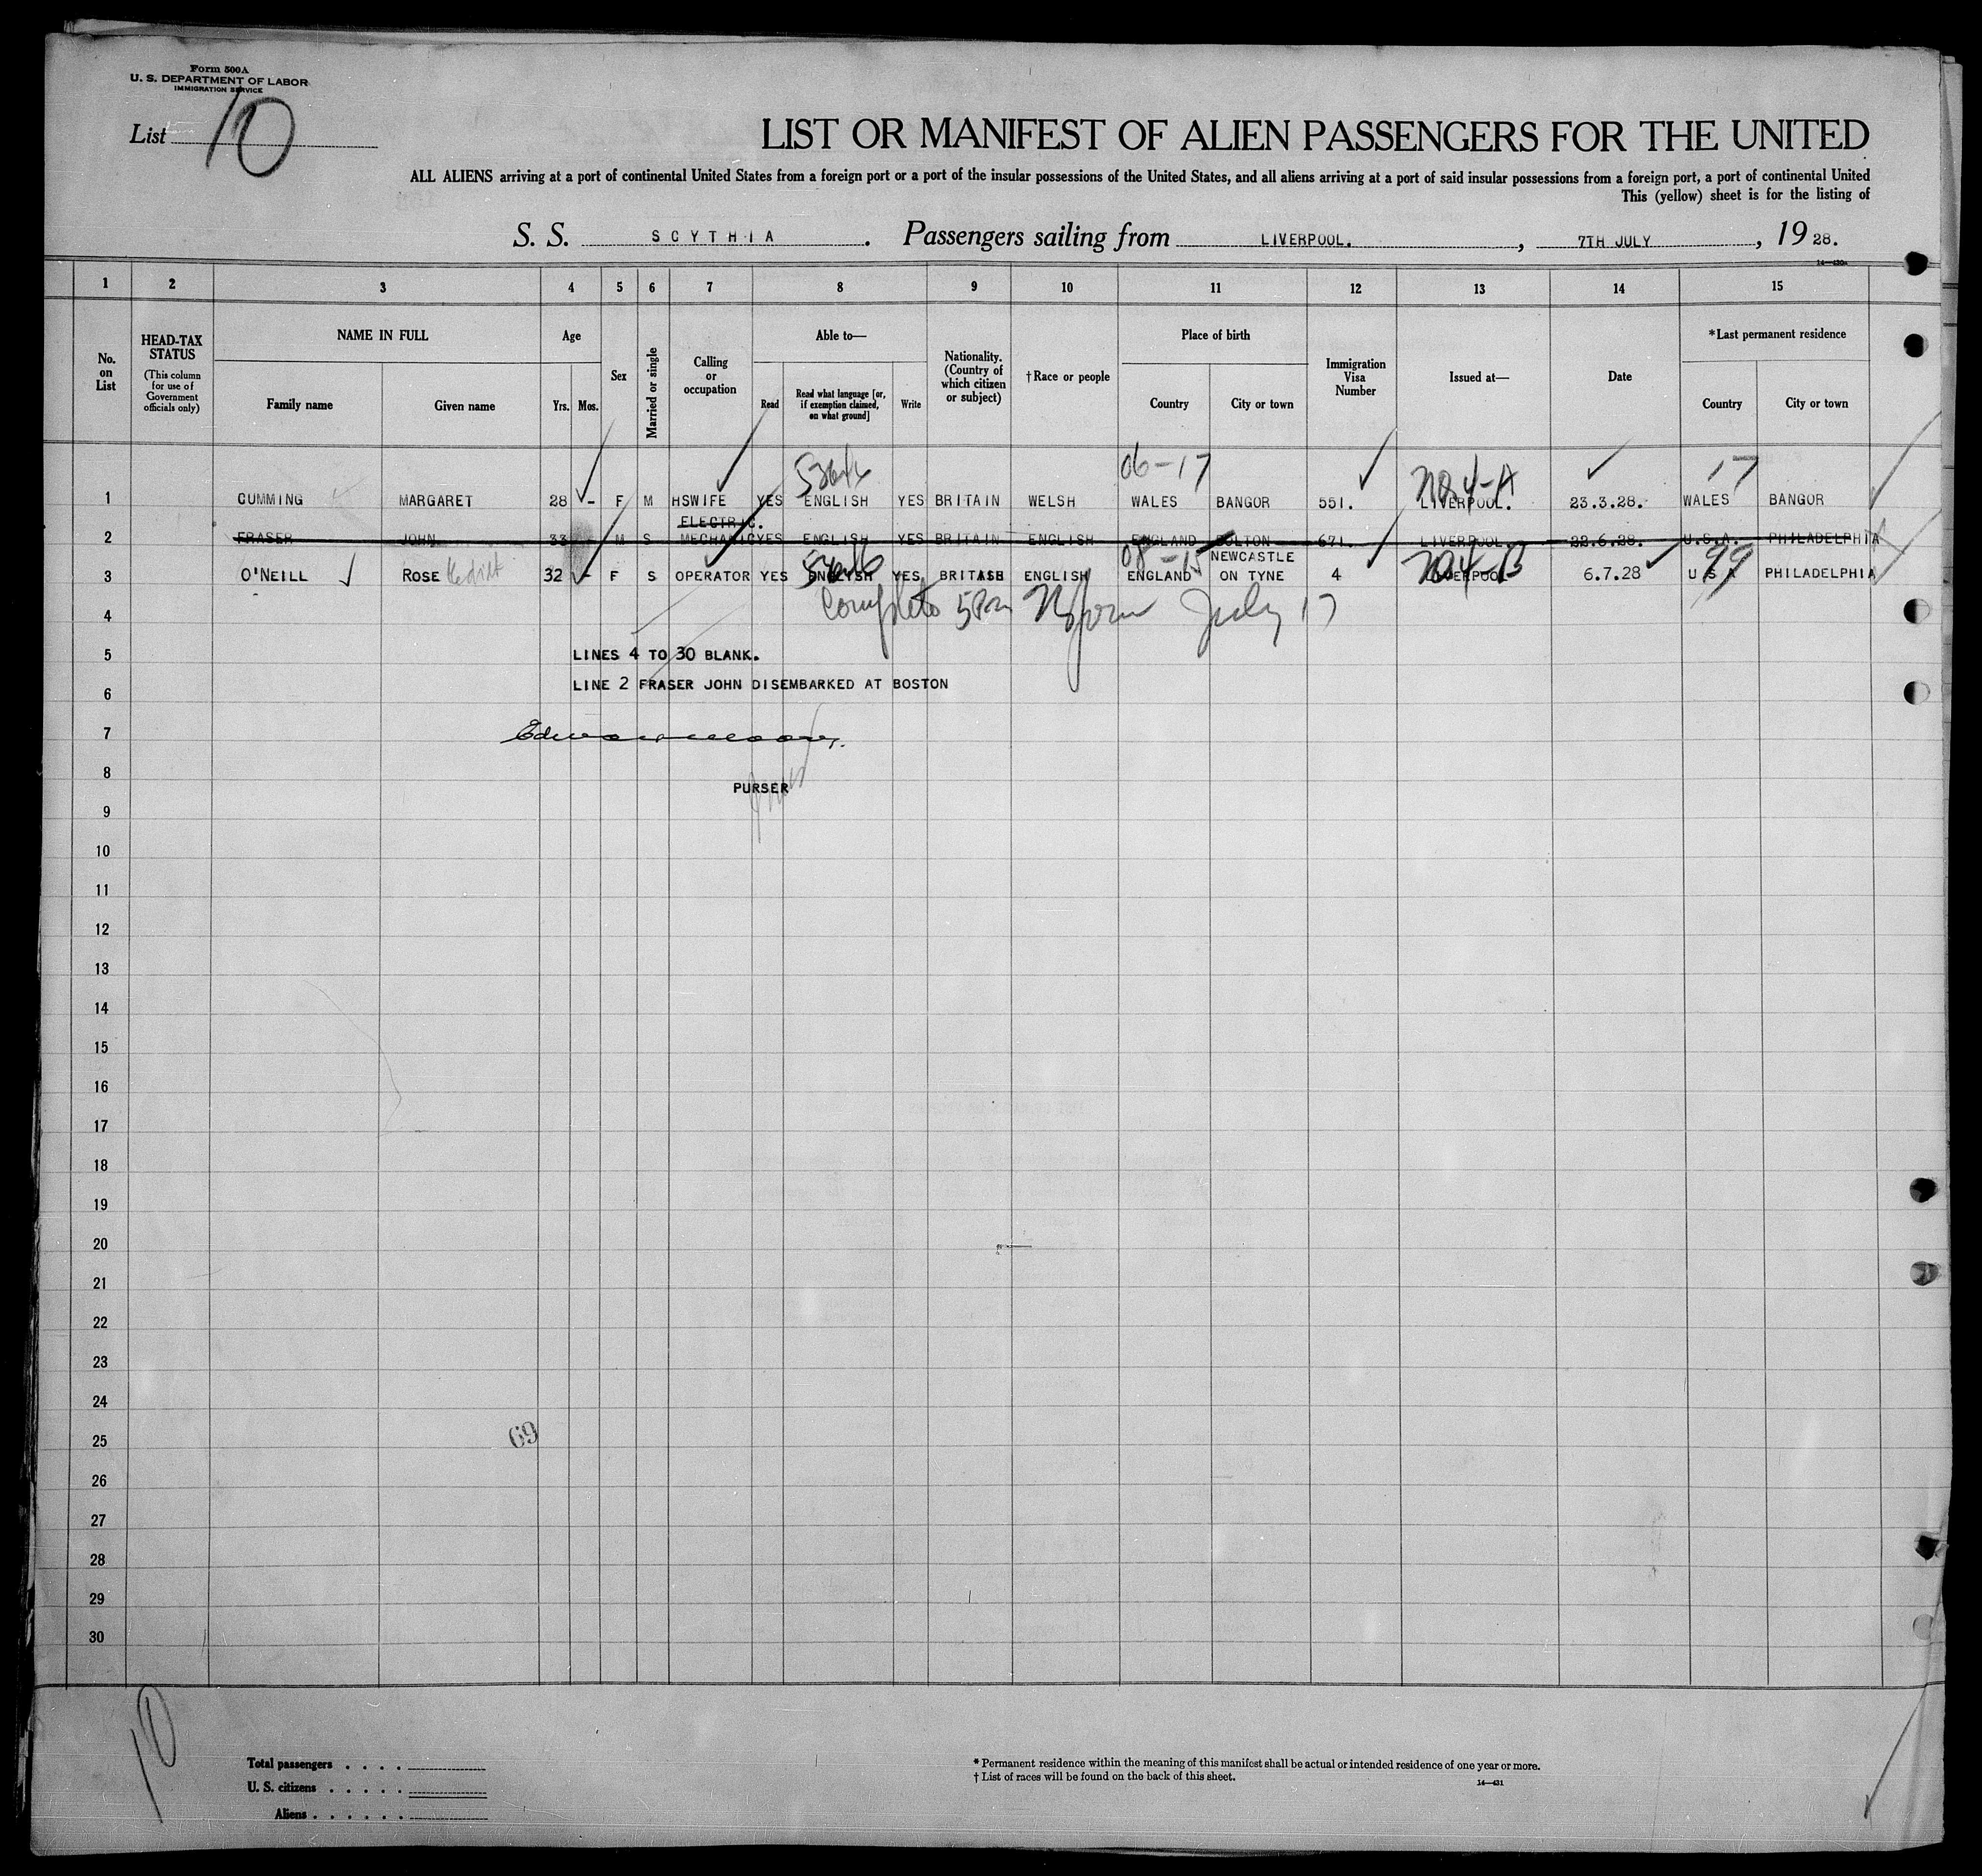 Form 500A
U. S. DEPARTMENT OF LABOR
IMMIGRATION SERVICE
List 10
LIST OR MANIFEST OF ALIEN PASSENGERS FOR THE UNITED
ALL ALIENS arriving at a port of continental United States from a foreign port or a port of the insular possessions of the United States, and all aliens arriving at a port of said insular possessions from a foreign port, a port of continental United
This (yellow) sheet is for the listing of
S. S. SCYTHIA. Passengers sailing from LIVERPOOL. , 7TH JULY , 19 28.
14—430
1 2 3 4 5 6 7 8 9 10 11 12 13 14 15
No. on List
HEAD-TAX STATUS
(This column for use of Government officials only)
NAME IN FULL
Family name Given name
Age
Yrs. Mos.
Sex
Married or single
Calling or occupation
Able to—
Read Read what language [or, if exemption claimed, on what ground] Write
Nationality. (Country of which citizen or subject)
†Race or people
Place of birth
Country City or town
Immigration Visa Number
Issued at—
Date
*Last permanent residence
Country City or town
06-17 17
1 CUMMING MARGARET 28 - F M HSWIFE YES ENGLISH YES BRITAIN WELSH WALES BANGOR 551. LIVERPOOL. 23.3.28. WALES BANGOR
ELECTRIC.
2 FRASER JOHN 33 M S MECHANIC YES ENGLISH YES BRITAIN ENGLISH ENGLAND BOLTON 671. LIVERPOOL 22.6.28. U.S.A. PHILADELPHIA
08-15 NEWCASTLE 99
3 O'NEILL ROSE 32 - F S OPERATOR YES ENGLISH YES BRITISH ENGLISH ENGLAND ON TYNE 4 LIVERPOOL 6.7.28 U S A PHILADELPHIA
4 Complete July 17
5 LINES 4 TO 30 BLANK.
6 LINE 2 FRASER JOHN DISEMBARKED AT BOSTON
7
8
PURSER
9
10
11
12
13
14
15
16
17
18
19
20
21
22
23
24
25 69
26
27
28
29
30
10
Total passengers . . . .
U. S. citizens . . . . .
Aliens . . . . . .
* Permanent residence within the meaning of this manifest shall be actual or intended residence of one year or more.
† List of races will be found on the back of this sheet.
14—431